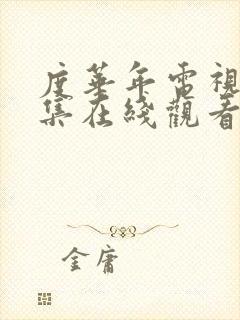 度華年電視
集在綫觀看
金庸